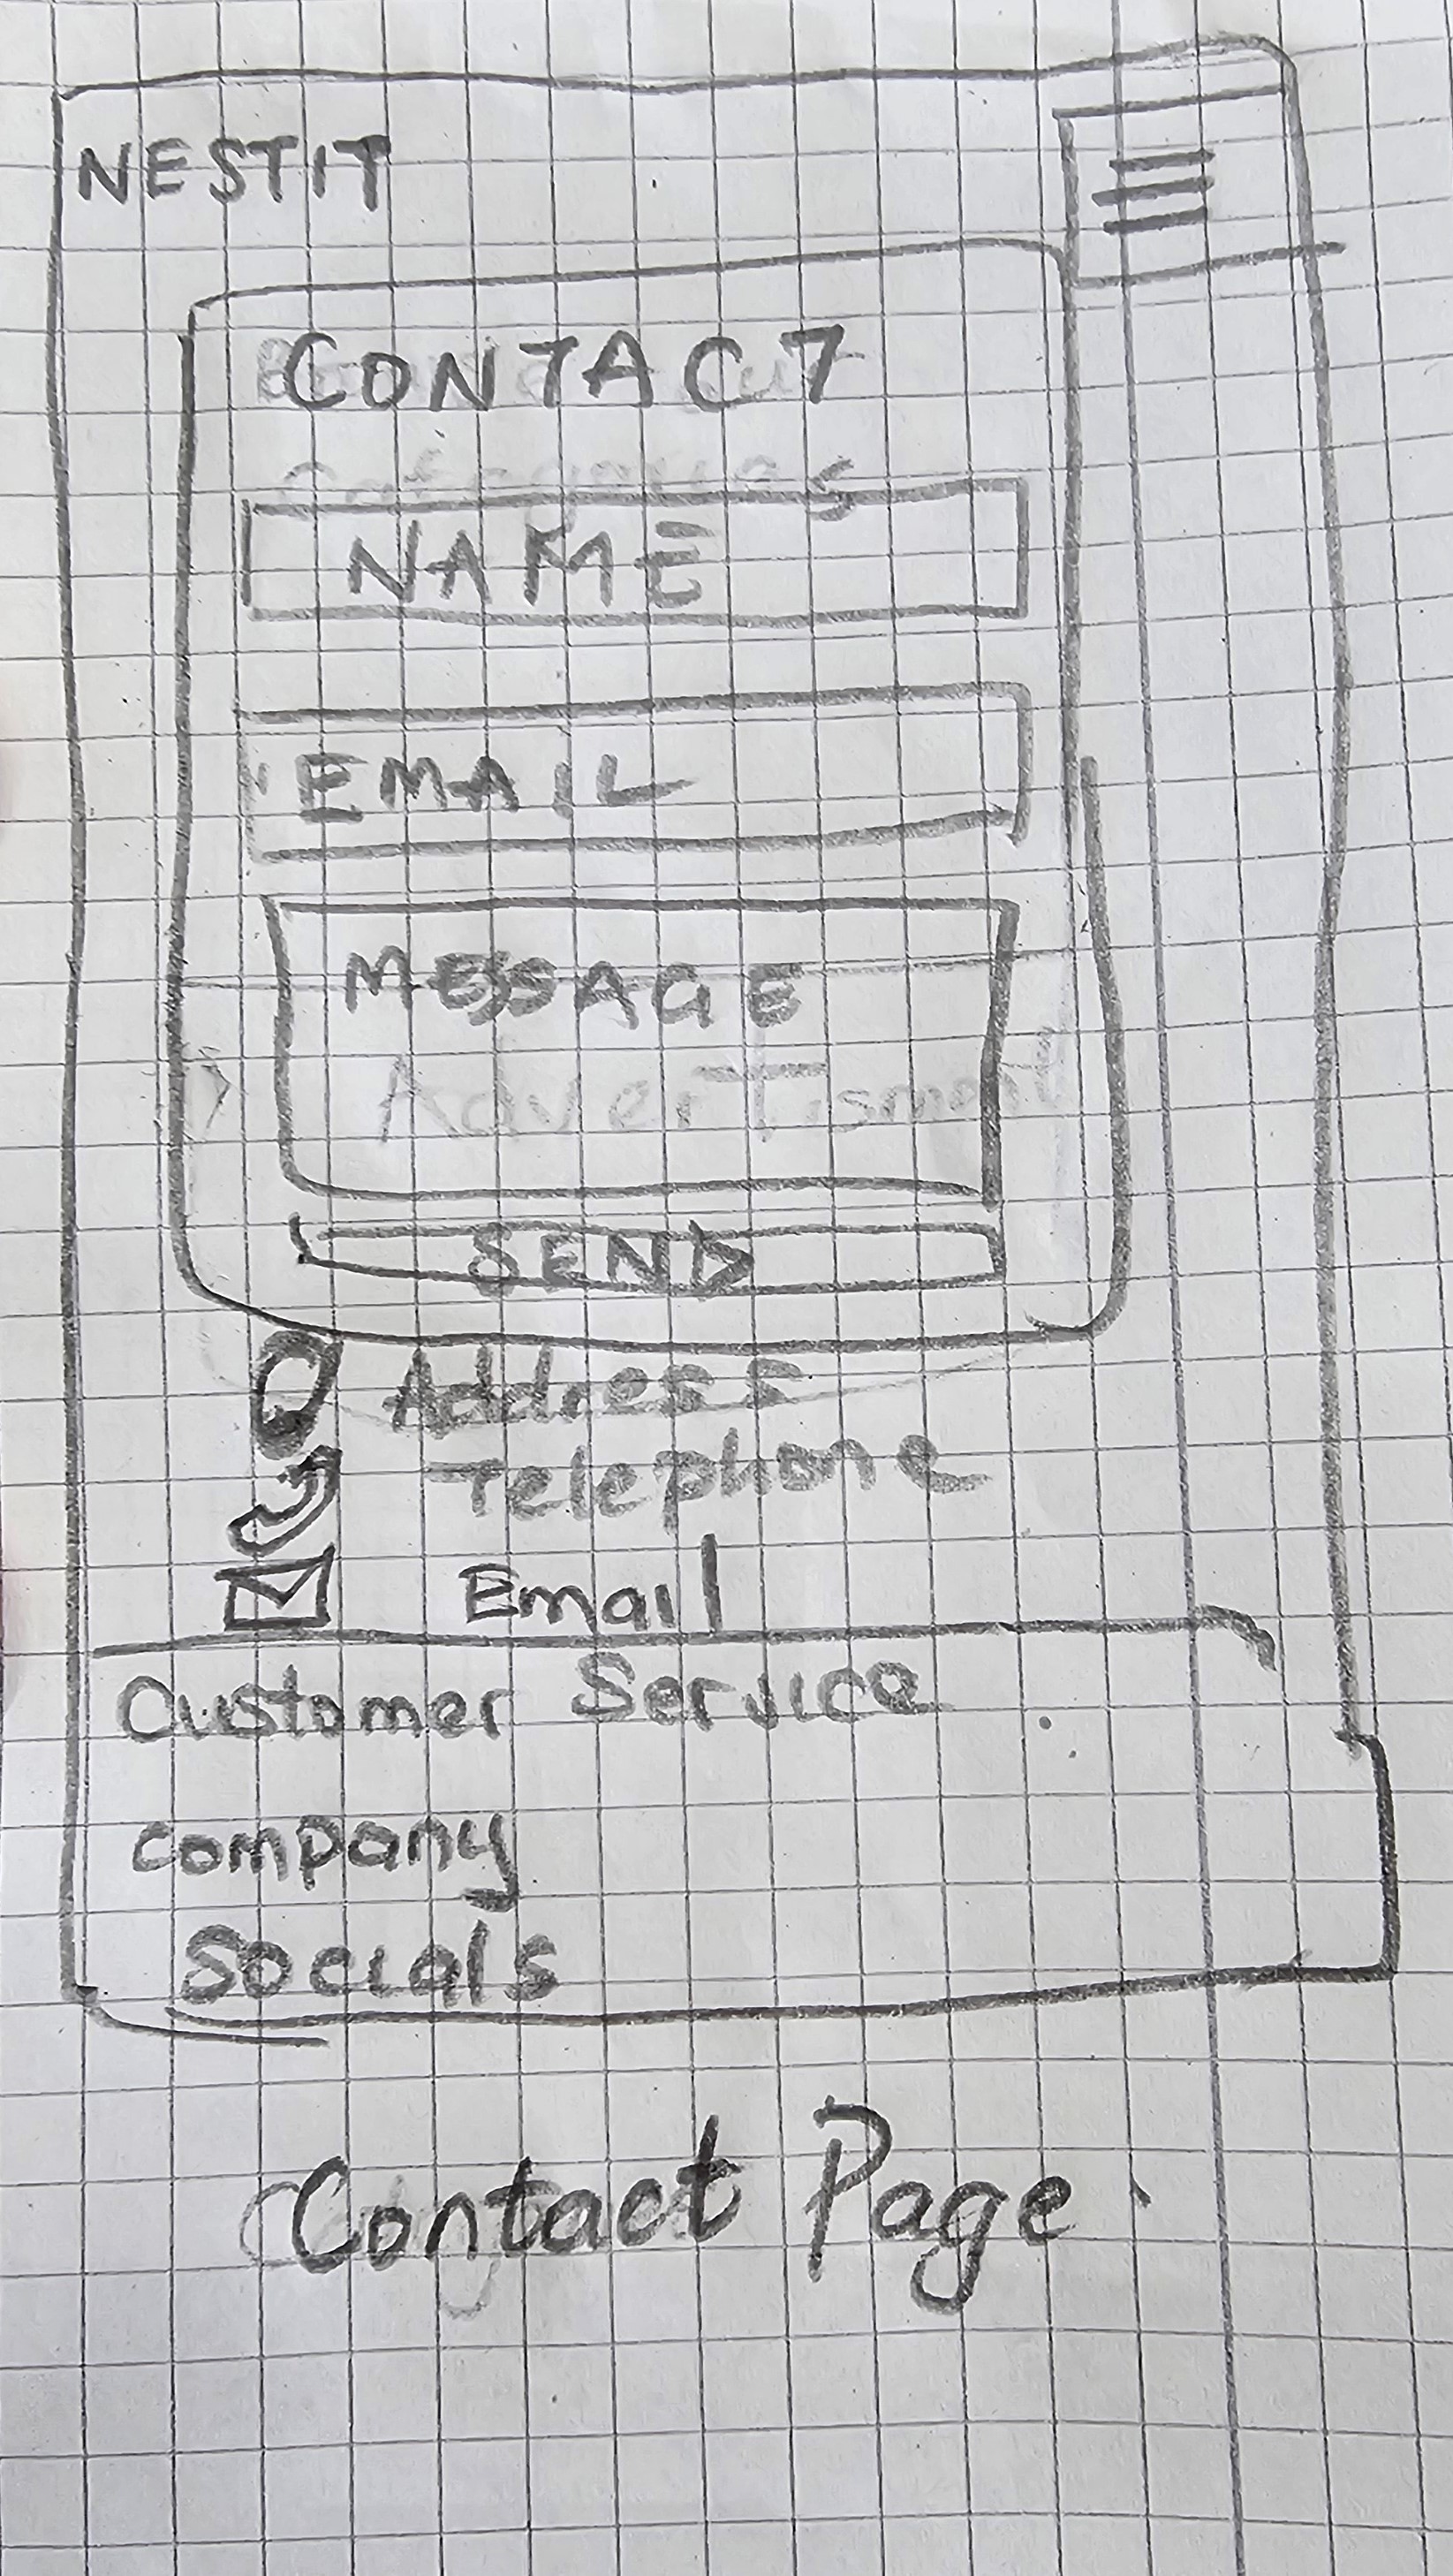 NESTIT
CONTACT
Categories
NAME
EMAIL
MESSAGE
Advertisment
SEND
Address
Telephone
Email
Customer Service
company
Socials
Contact Page